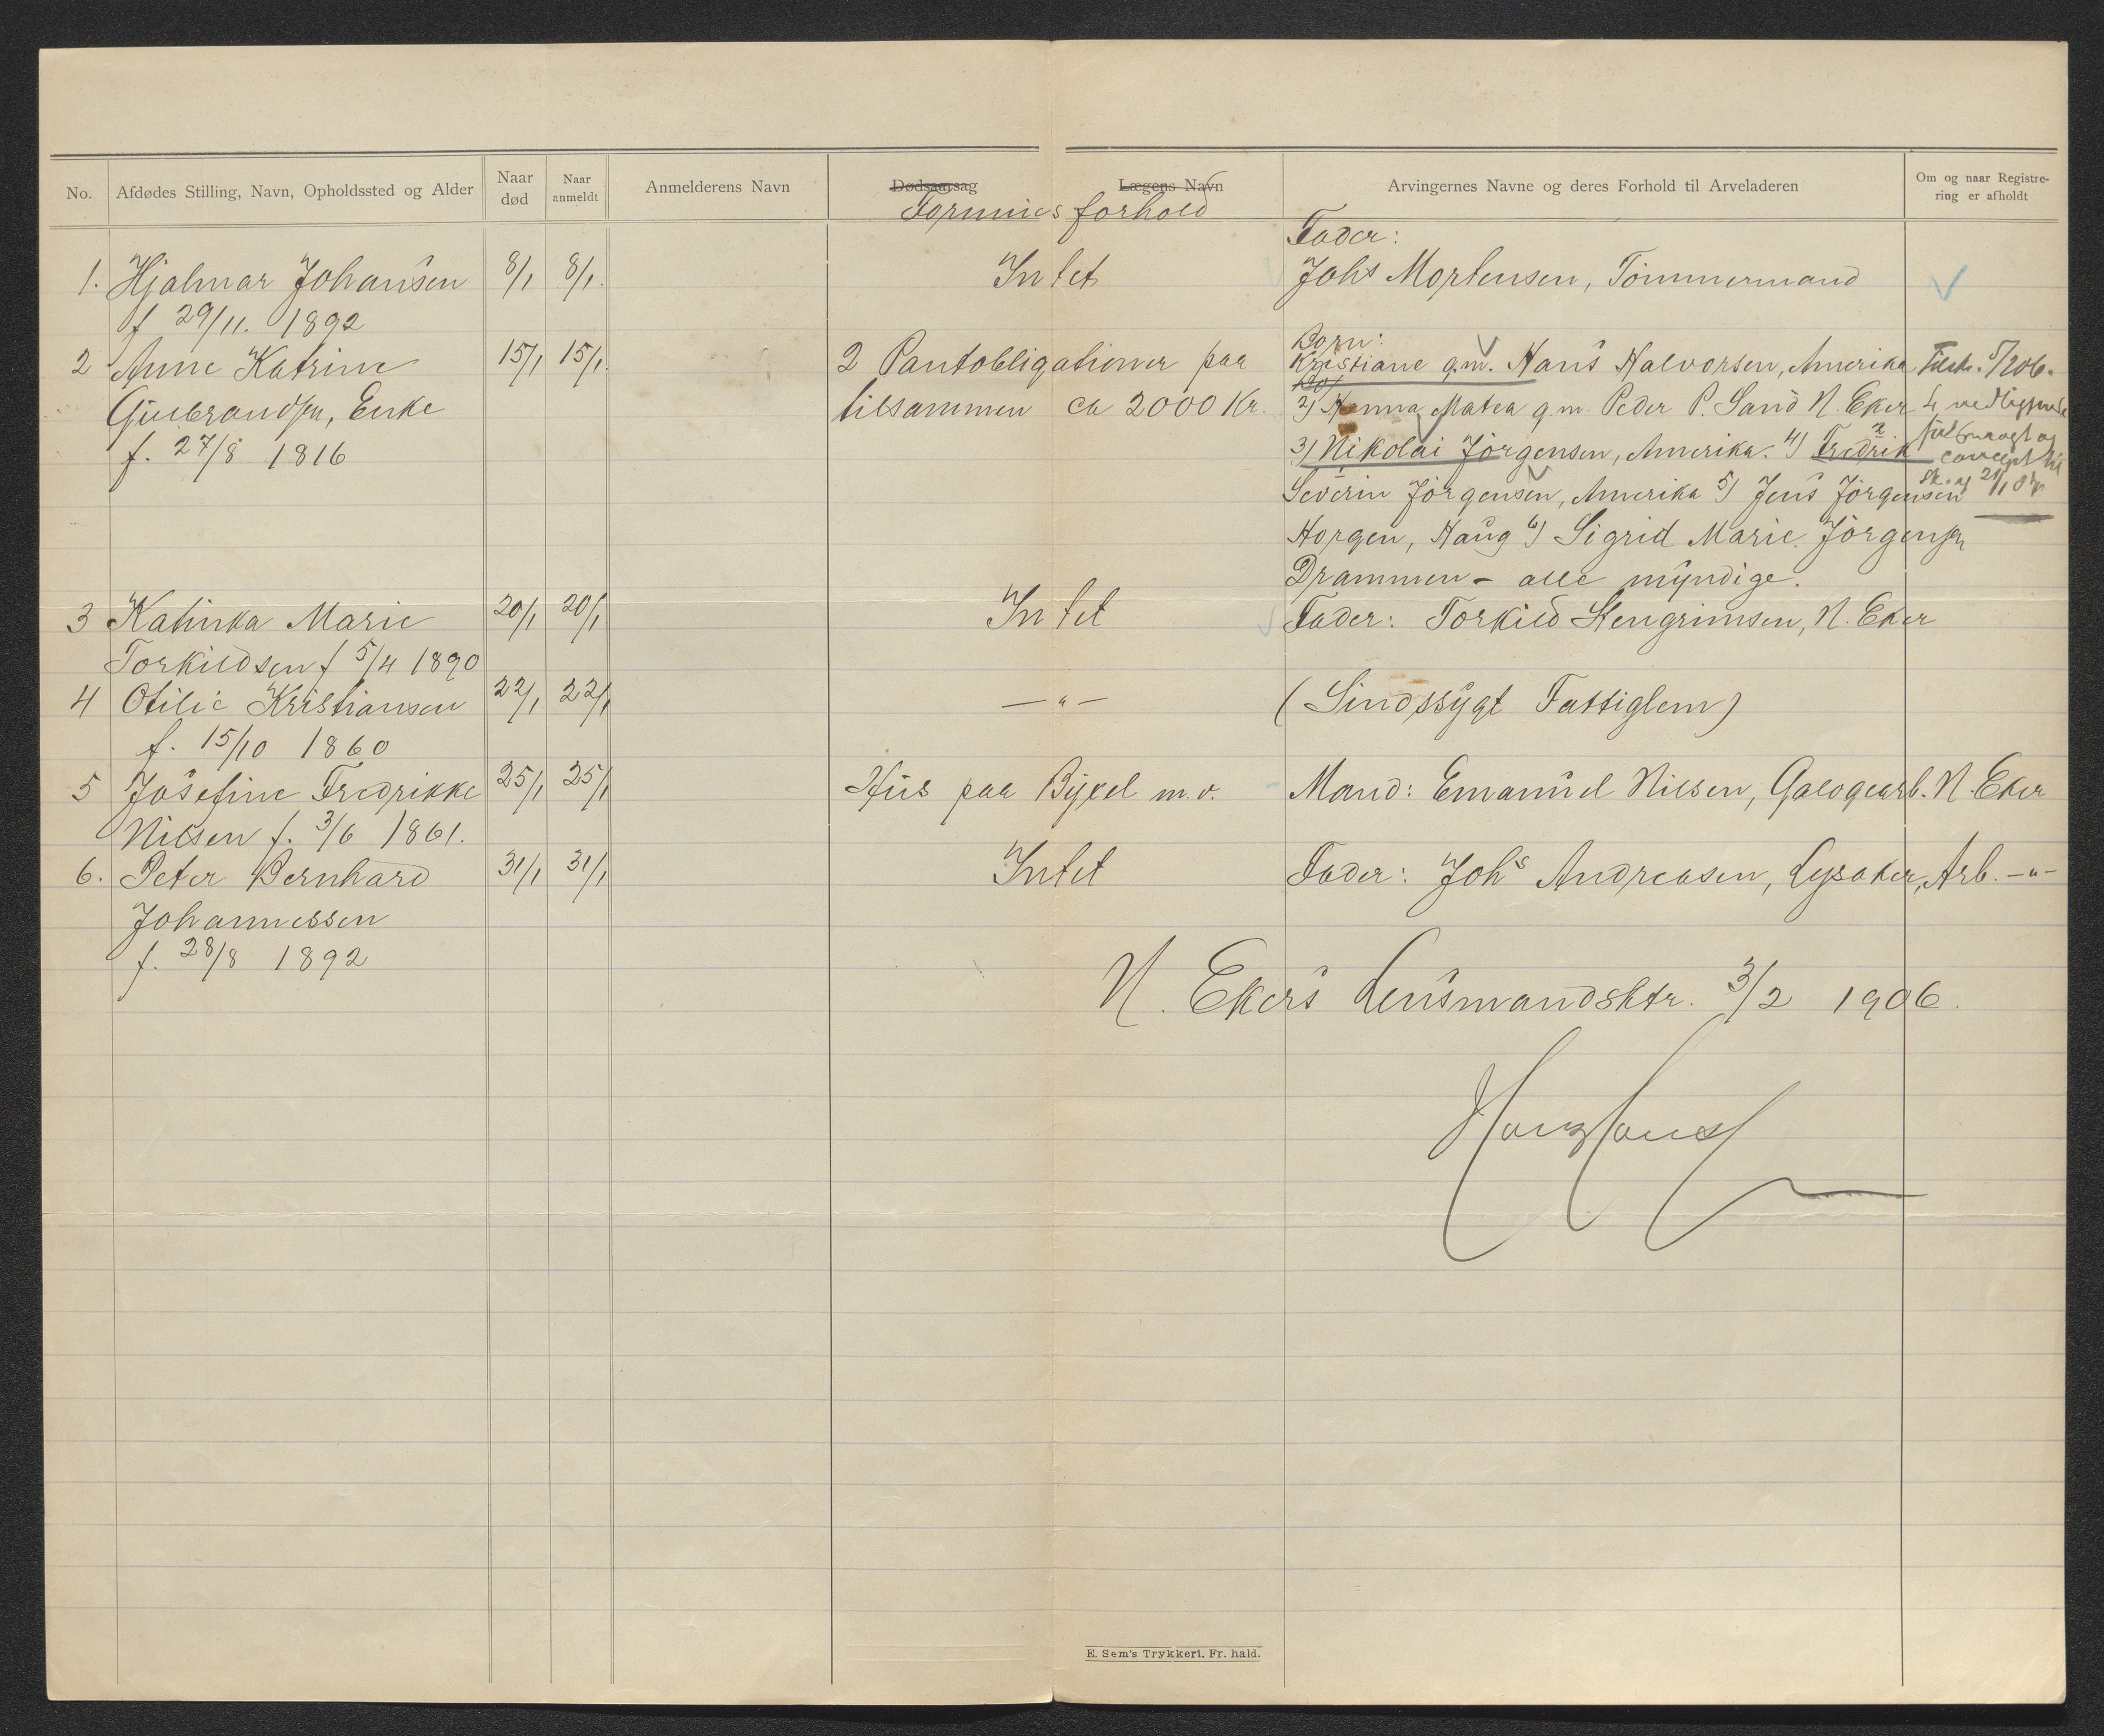 No. Afdødes Stilling, Navn, Opholdssted og Alder Naar død Naar anmeldt Anmelderens Navn Dødsaarsag Lægens Navn Arvingernes Navne og deres Forhold til Arveladeren Om og naar Registrering er afholdt
Formues forhold
Fader:
1. Hjalmar Johansen 8/1 8/1. Intet Johs Mortensen, Tömmermand
f 29/11. 1892
Børn:
2 Anne Katrine 15/1 15/1. 2 Pantobligationer paa Kristiane g.m. Hans Halvorsen, Amerika
Gulbrandsen, Enke tilsammen ca 2000 Kr. 2) Hanna Matea g.m. Peder P. Sand N. Eker
f. 27/8 1816 3) Nikolai Jörgensen, Amerika. 4) Fredrik
Severin Jörgensen, Amerika 5) Jens Jörgensen
Horgen, Haug 6) Sigrid Marie Jörgensen
Drammen - alle myndige.
3 Katinka Marie 20/1 20/1 Intet Fader: Torkild Stengrimsen, N. Eker
Torkildsen f 5/4 1890
4 Otilie Kristiansen 22/1 22/1 — " — (Sindssygt Fattiglem)
f. 15/10 1860
5 Josefine Fredrikke 25/1 25/1 Hus paa Bykel m.v. Mand: Emanuel Nilsen, Galogearb. N. Eker
Nilsen f. 3/6 1861.
6. Peter Bernhard 31/1 31/1 Intet Fader: Johs Andreasen, Lysaker, Arb. —"—
Johannessen
f. 28/8 1892
N. Ekers Lensmandsktr. 3/2 1906.
E. Sem's Trykkeri, Fr. hald.